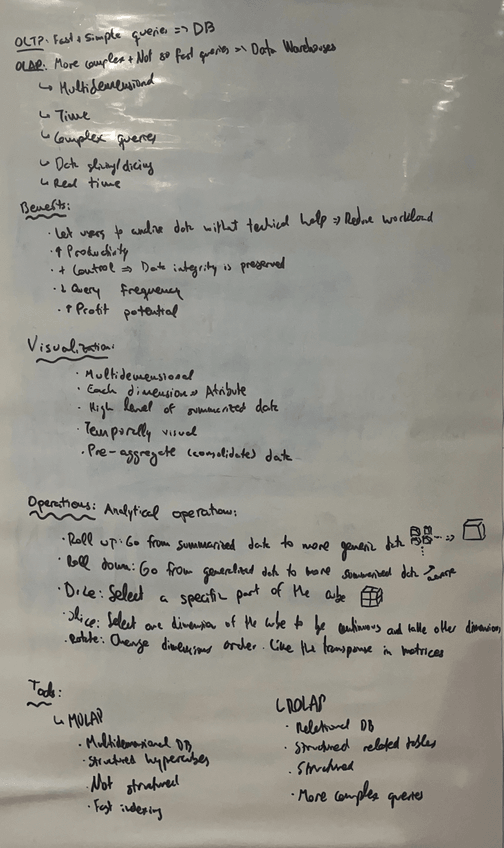 OLTP: Fast + Simple queries => DB
OLAP: More complex + Not so fast queries => Data Warehouses
↳ Multidemensional
↳ Time
↳ Complex queries
↳ Data slicing/dicing
↳ Real time
Benefits:
· Let users to analize data without techical help => Reduce workload
· ↑ Productivity
· + Control => Data integrity is preserved
· ↓ Query frequency
· ↑ Profit potential
Visualization:
· Multidemensional
· Each dimension => Atribute
· High level of summarized data
· Temporally visual
· Pre-aggregate (consolidates) data
Operations: Analytical operation:
· Roll up: Go from summarized data to more generic data
· Roll down: Go from generalized data to more summarized data
· Dice: Select a specific part of the cube
· Slice: Select one dimension of the cube to be continuous and other dimension
· Rotate: Change dimensions order. Like the transpose in matrices
Tools:
↳ MOLAP
· Multidimensional DB
· Structures hypercubes
· Not structured
· Fast indexing
↳ ROLAP
· Relational DB
· Structured related tables
· Structured
· More complex queries